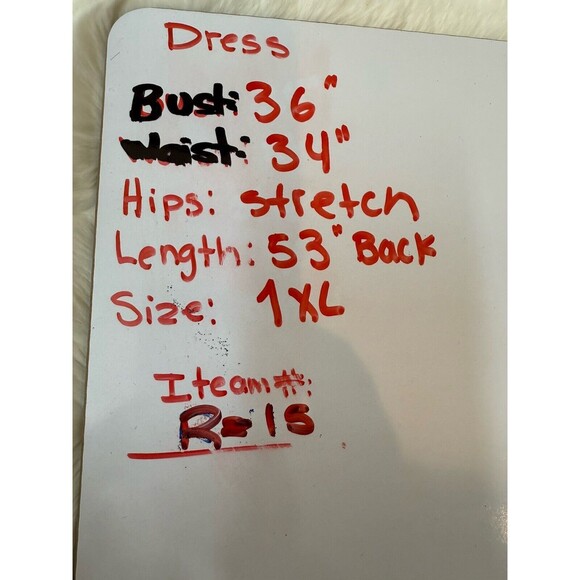 Dress
Bust: 36"
Waist: 34"
Hips: stretch
Length: 53" Back
Size: 1XL
Iteam#:
R=15